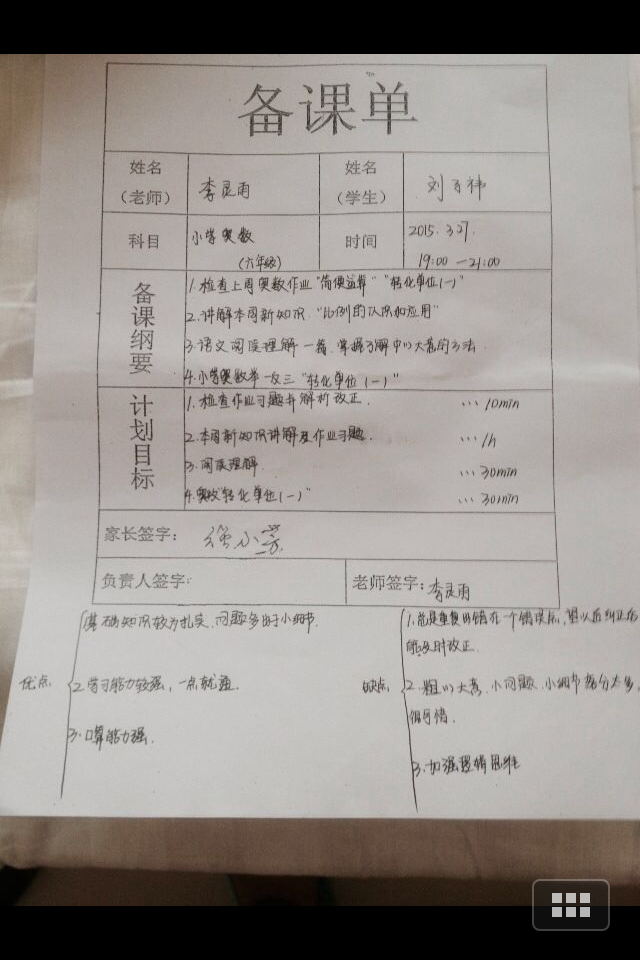 备课单
姓名（老师） 李灵雨 姓名（学生） 刘子祎
科目 小学奥数（六年级） 时间 2015.3.27. 19:00—21:00
备课纲要
1.检查上周奥数作业“简便运算”“转化单位(一)”
2.讲解本周新知识.“比例的认识和应用”
3.语文阅读理解一篇,掌握了解中心大意的方法.
4.小学奥数举一反三“转化单位(一)”
计划目标
1.检查作业习题并解析改正. … 10min
2.本周新知识讲解及作业习题. … 1h
3.阅读理解. … 30min
4.奥数“转化单位(一)” … 30min
家长签字: 小芳
负责人签字: 老师签字: 李灵雨
优点
1.基础知识较为扎实,问题多出于小细节.
2.学习能力较强,一点就通.
3.口算能力强.
缺点
1.总是重复出错在一个错误点,望以后纠正后
能及时改正.
2.粗心大意,小问题,小细节扣分太多,
3.加强逻辑思维